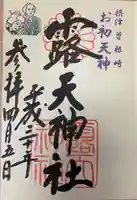 摂津 曽根崎
お初天神
露天神社
平成二十一年
参拝四月五日